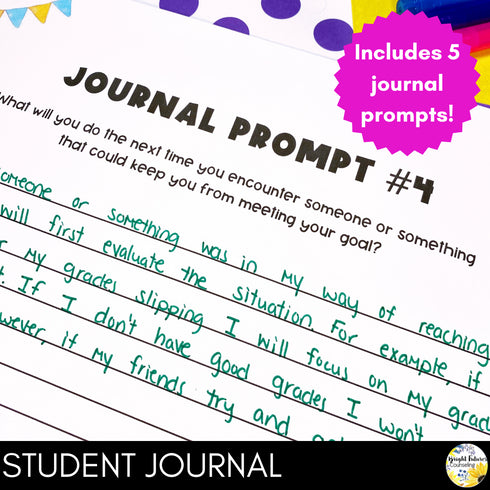 Includes 5
journal
prompts!
JOURNAL PROMPT #4
What will you do the next time you encounter someone or something
that could keep you from meeting your goal?
someone or something was in my way of reaching
will first evaluate the situation. For example, if
my grades slipping I will focus on my grad
. If I don't have good grades I won't
wever, if my friends try and
STUDENT JOURNAL
Bright Futures
Counseling